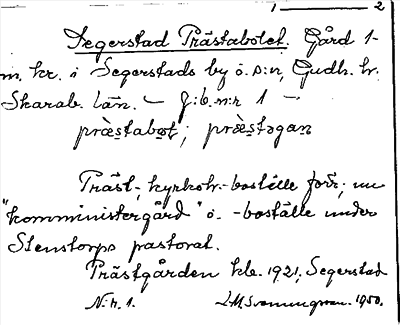 1 — 2
Segerstad Prästabolet. Gård 1
m. kr. i Segerstads by o. s:n, Gudh. hr.
Skarab. län. — J:b.n:r 1 —.
præstabot; præstəgan
Präst-, kyrkohr.-boställe förr; nu
"komministergård" o. -boställe under
Stenstorps pastorat.
Prästgården kb. 1921, Segerstad
N:r. 1. 1950.